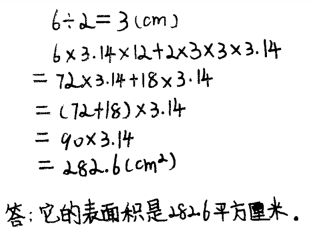 6÷2=3(cm)
6×3.14×12+2×3×3×3.14
=72×3.14+18×3.14
=(72+18)×3.14
=90×3.14
=282.6(cm²)
答:它的表面积是282.6平方厘米.